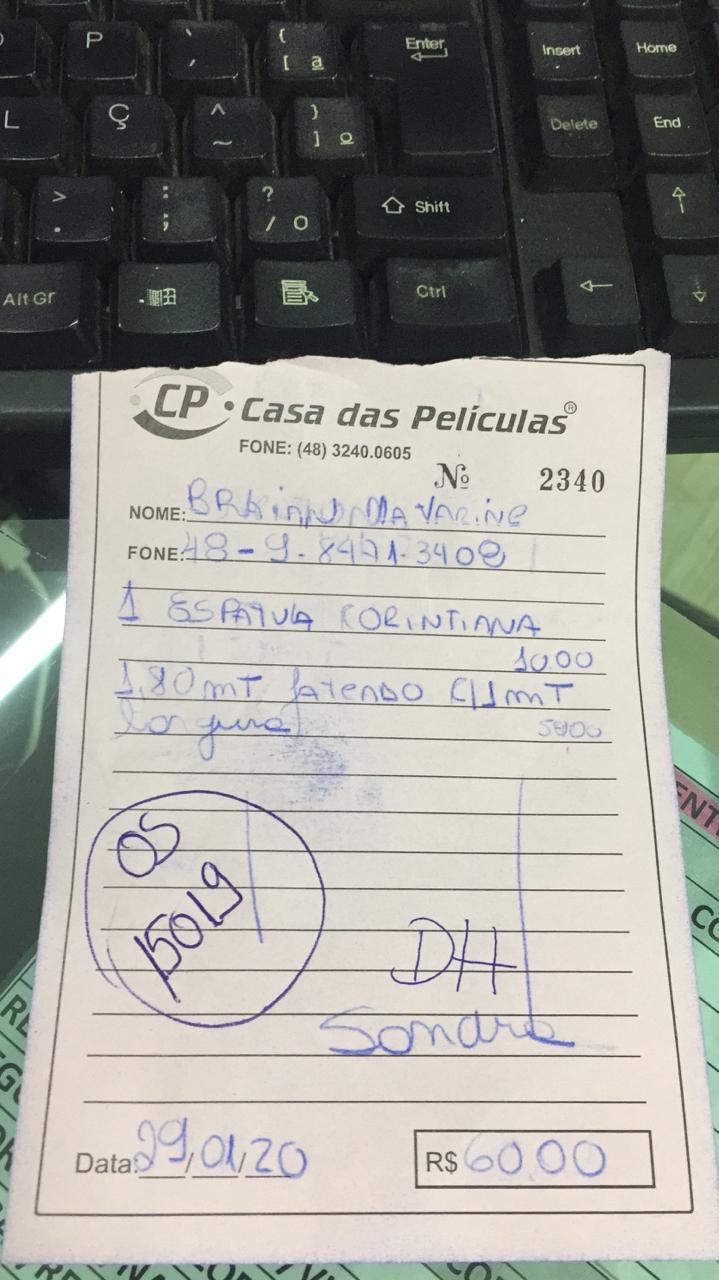 P
{
[ a
Enter
Insert
Home
L
Ç
^
~
}
] o
Delete
End
>
.
:
;
?
/ O
Shift
Alt Gr
Ctrl
CP · Casa das Películas®
FONE: (48) 3240.0605
Nº 2340
NOME:
FONE: 48-9.8471.3408
1 ESPATULA CORINTIANA
10,00
1,80 mT fatendo C/1 mT
largura
OS
15019
DH
Sandra
Data: 29/01/20 R$ 60,00